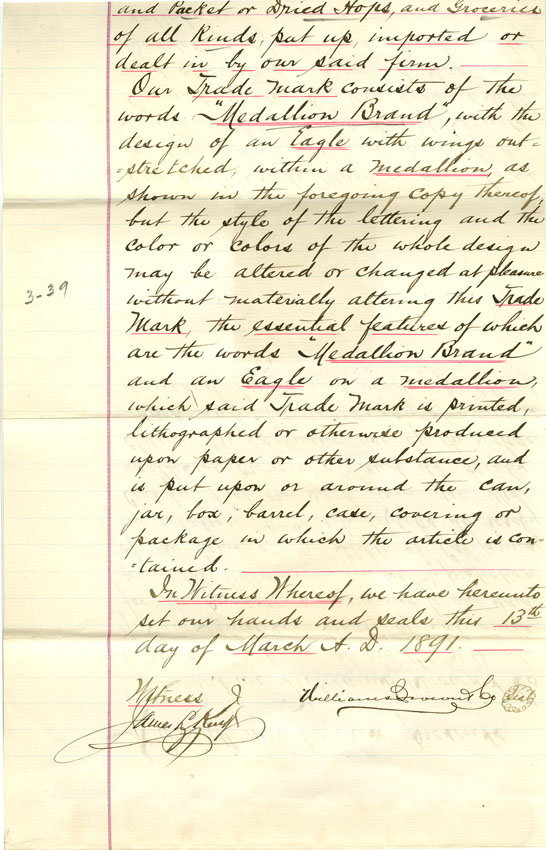 and Packet or Dried Hops, and Groceries
of all Kinds, put up, imported or
dealt in by our said firm.
Our Trade Mark consists of the
words "Medallion Brand", with the
design of an Eagle with wings out=
=stretched, within a medallion, as
shown in the foregoing copy thereof,
but the style of the lettering and the
color or colors of the whole design
may be altered or changed at pleasure
without materially altering this Trade
Mark, the essential features of which
are the words "Medallion Brand"
and an Eagle on a medallion,
which said Trade Mark is printed,
lithographed or otherwise produced
upon paper or other substance, and
is put upon or around the can,
jar, box, barrel, case, covering or
package in which the article is con=
=tained.
In Witness Whereof, we have hereunto
set our hands and seals this 13th
day of March A. D. 1891.
Witness
Williams Brown & Co
James L.
3-39